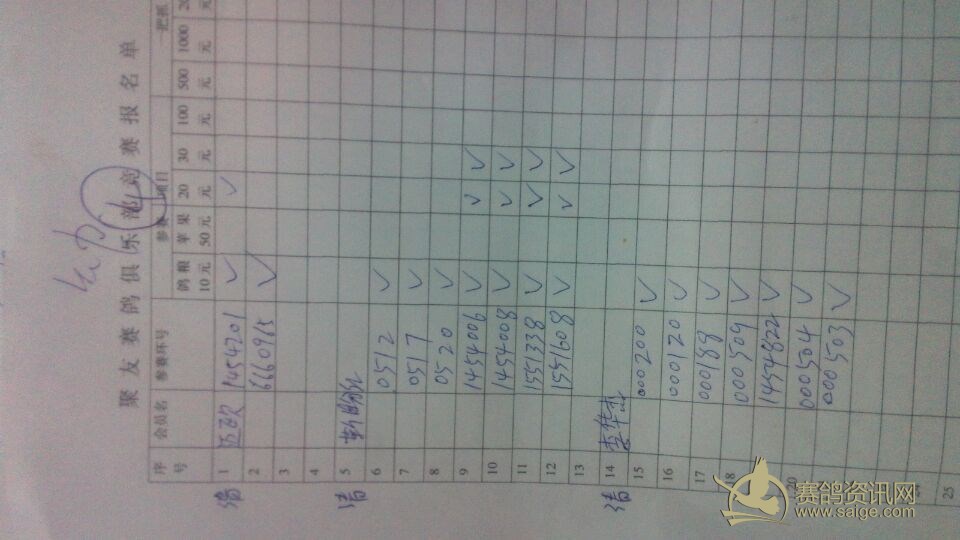 聚友赛鸽俱乐部竞赛报名单
序号 会员名 参赛环号 参赛项目 一把抓
鸽粮10元 苹果50元 20元 30元 100元 500元 1000元
1 1454201 ✓ ✓
2 6160965 ✓
3
4
清 5
6 0512 ✓
7 0517 ✓
8 0520 ✓
9 1454006 ✓ ✓ ✓
10 1454008 ✓ ✓ ✓
11 1551338 ✓ ✓ ✓
12 1551608 ✓ ✓ ✓
13
清 14
15 000200 ✓
16 000120 ✓
17 000189 ✓
18 000509 ✓
1454822 ✓
20 000504 ✓
000503 ✓
25
赛鸽资讯网
www.saige.com